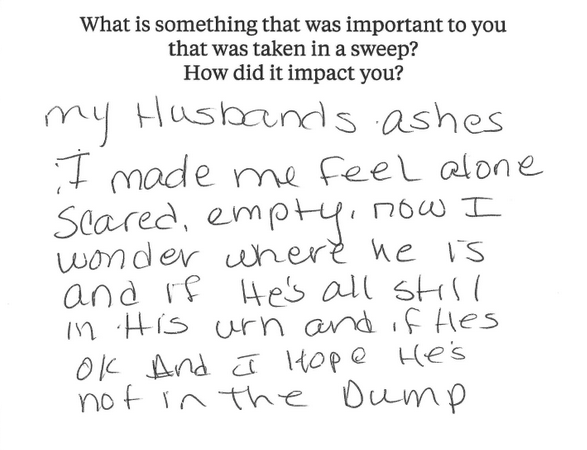 What is something that was important to you
that was taken in a sweep?
How did it impact you?
my Husbands ashes
I made me feel alone
Scared, empty, now I
wonder where he is
and if He's all still
in His urn and if Hes
ok And I Hope He's
not in the Dump